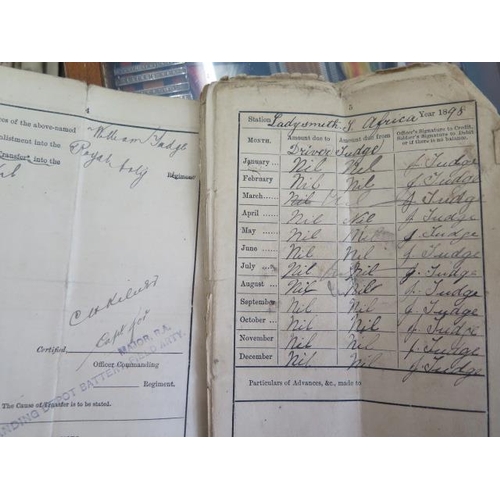 4
es of the above-named William Judge
nlistment into the Royal
Transfer into the Regiment.
Capt for
MAJOR, R.A.
Certified
Officer Commanding
Regiment.
The Cause of Transfer is to be stated.
ANDING DEPOT BATTERY FIELD ARTY.
5
Station Ladysmith S. Africa Year 1898
MONTH. Amount due to Amount due from Officer's Signature to Credit, Soldier's Signature to Debit, or if there is no balance.
Driver Judge
January Nil Nil J Judge
February Nil Nil J Judge
March Nil Nil J Judge
April Nil Nil J Judge
May Nil Nil J Judge
June Nil Nil J Judge
July Nil Nil J Judge
August Nil Nil J Judge
September Nil Nil J Judge
October Nil Nil J Judge
November Nil Nil J Judge
December Nil Nil J Judge
Particulars of Advances, &c., made to